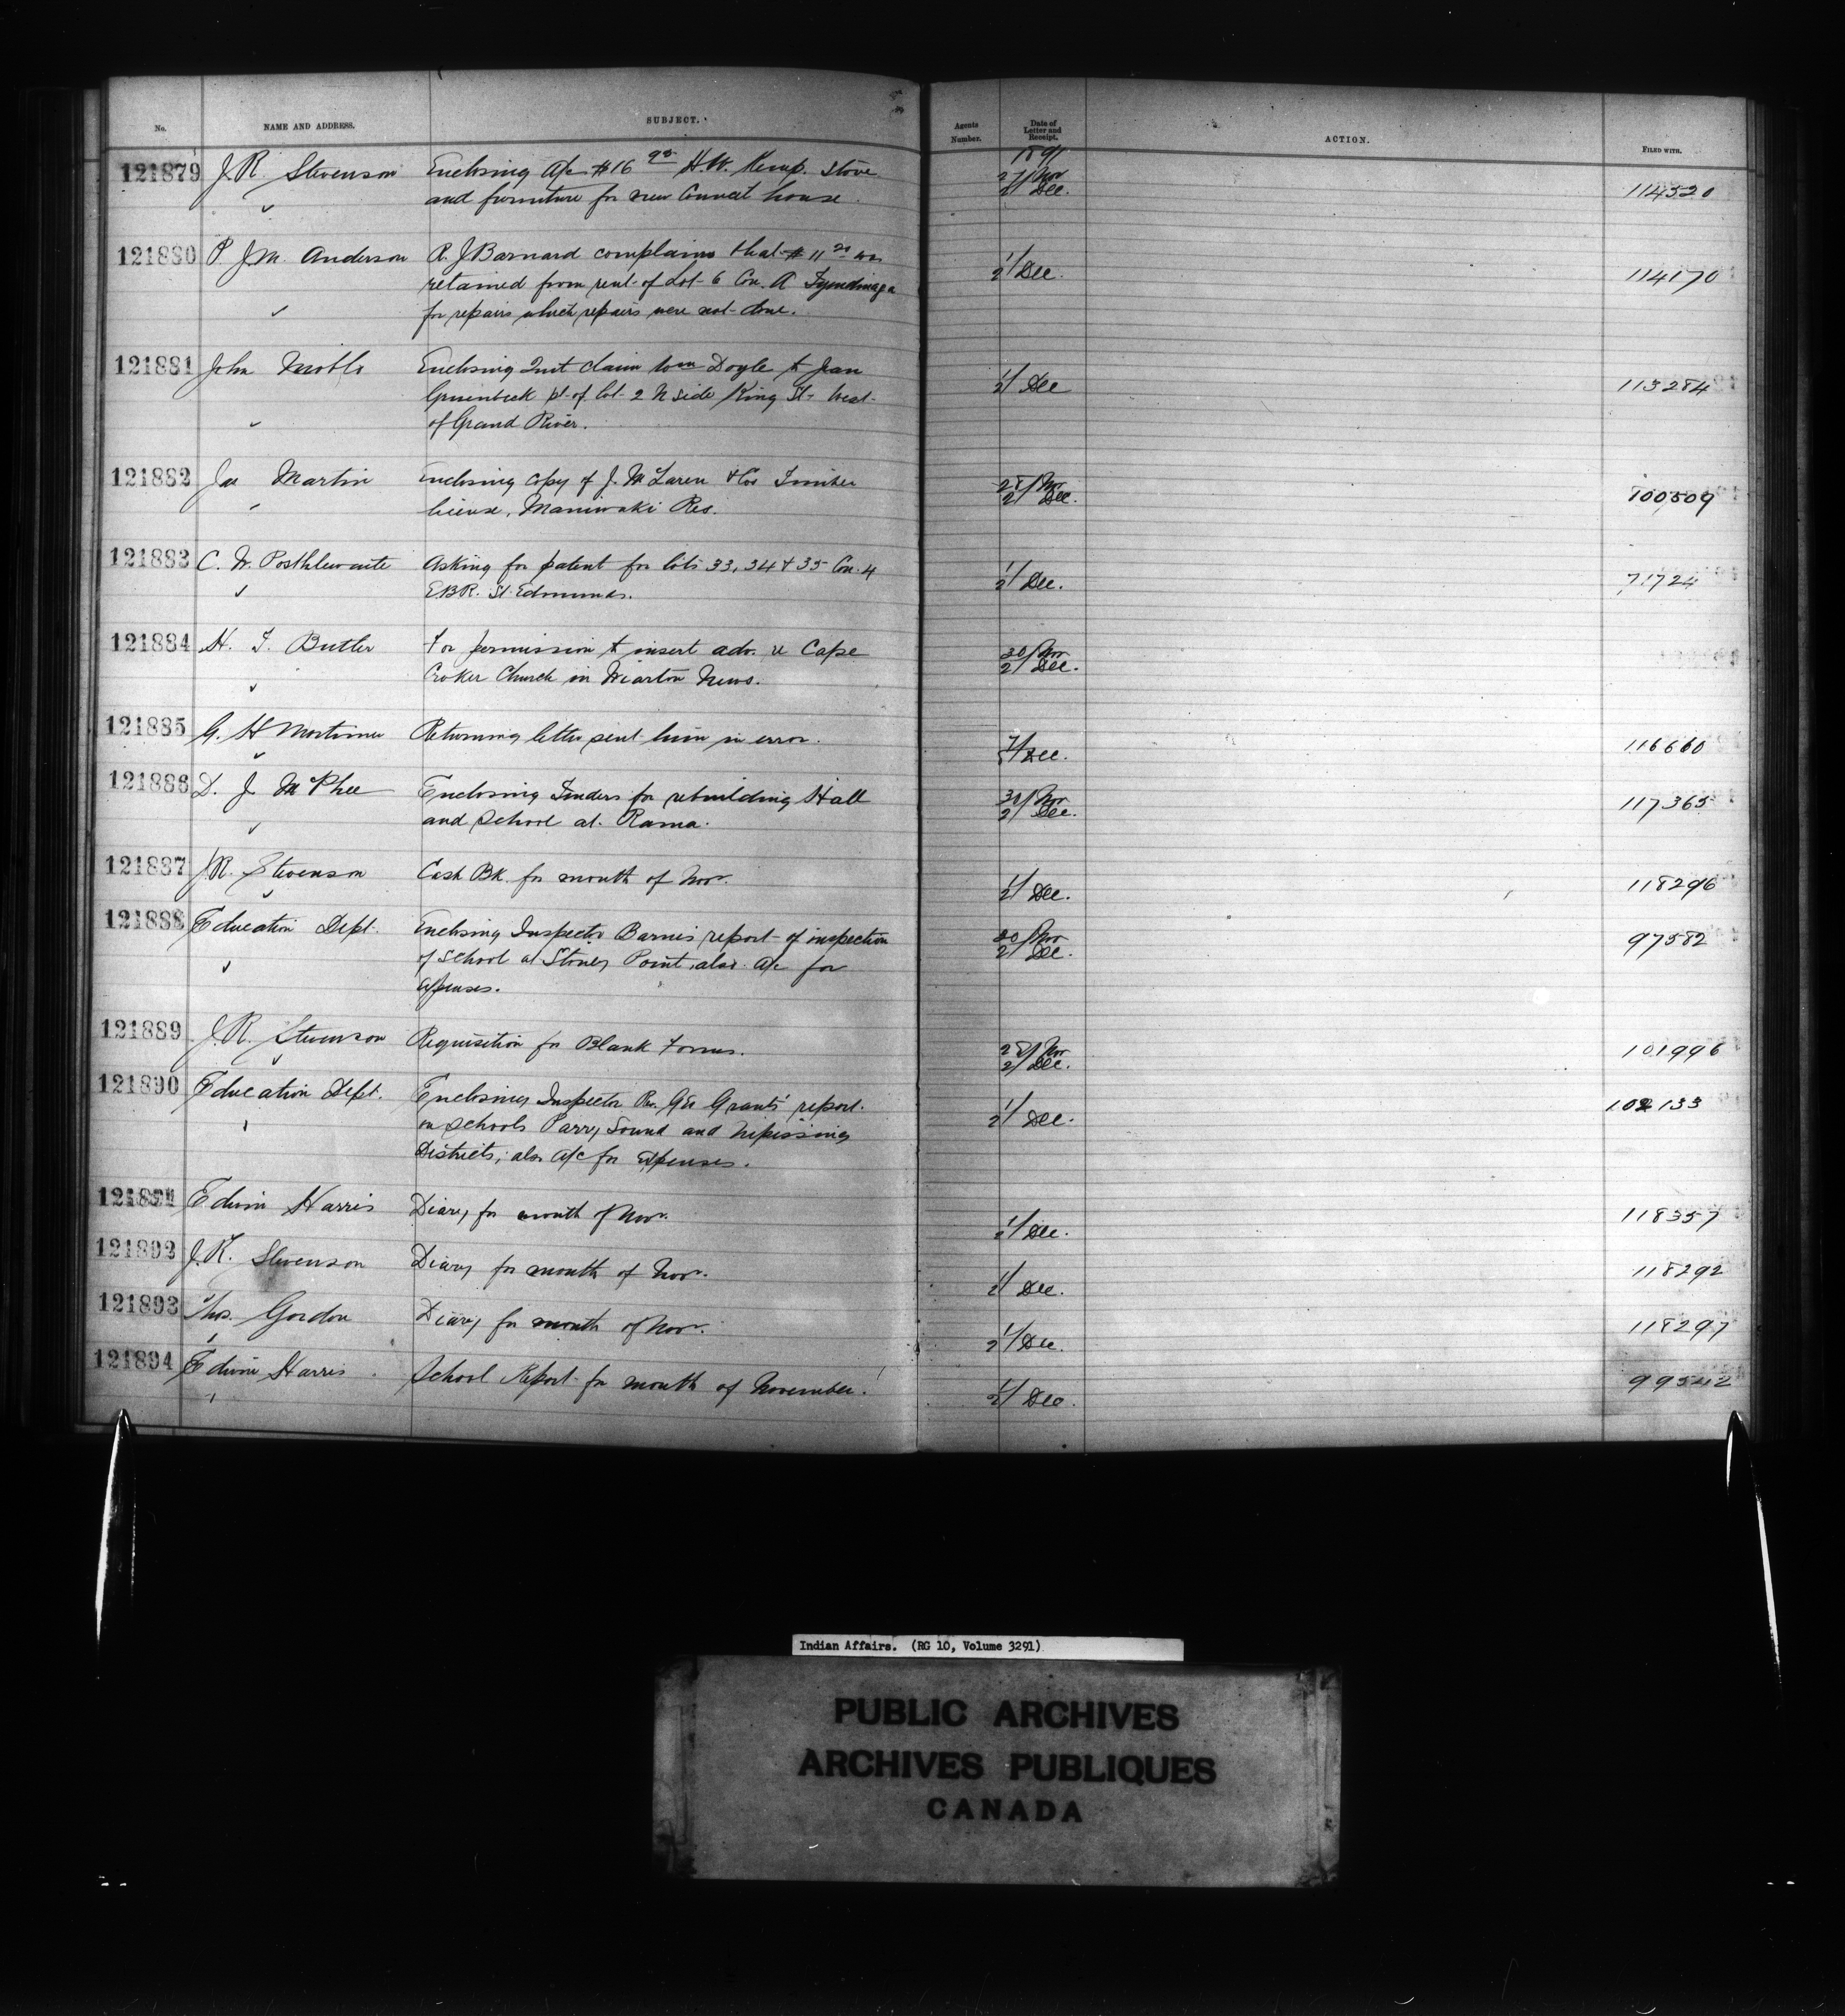 No. NAME AND ADDRESS. SUBJECT. Agents Number. Date of Letter and Receipt. ACTION. FILED WITH.
1891
121879 J. R. Stevenson Enclosing a/c $16 H. W. Kemp. Stove 27/Nov 2/Dec. 114520
and furniture for new Council house.
121880 P. J. M. Anderson R. J Barnard complains that $11 was 1/2/Dec. 114170
retained from rent of Lot 6 Con. A Tyendinaga
for repairs which repairs were not done.
121881 John Enclosing Quit claim Wm Doyle to Jean 1/2/Dec 113284
pt. of lot 2 N side King St. West
of Grand River.
121882 Jas Martin Enclosing copy of J. McLaren & Cos Timber 28/Nov 2/Dec. 100509
license, Maniwaki Res.
121883 C. W. Posthlewaite Asking for patent for lots 33, 34 & 35 Con. 4 1/2/Dec. 71724
E.B.R. St. Edmunds.
121884 H. T. Butler For permission to insert adv. re Cape 30/Nov 2/Dec.
Croker Church in Wiarton News.
121885 G. H Mortimer Returning letter sent him in error. /Dec. 116660
121886 D. J. McPhee Enclosing Tenders for rebuilding Hall 30/Nov 2/Dec. 117365
and School at Rama.
121887 J. R. Stevenson Cash Bk. for month of Nov. 1/2/Dec. 118296
121888 Education Dept. Enclosing Inspector Barnes report of inspection 30/Nov 2/Dec. 97582
of School at Stoney Point, also a/c for
expenses.
121889 J. R. Stevenson Requisition for Blank Forms. 28/Nov 2/Dec. 101996
121890 Education Dept. Enclosing Inspector Rev. Geo Grants' report 1/2/Dec. 102133
on schools Parry Sound and Nipissing
Districts; also a/c for expenses.
121891 Edwin Harris Diary for month of Nov. 1/2/Dec. 118357
121892 J. R. Stevenson Diary for month of Nov. 1/2/Dec. 118292
121893 Thos. Gordon Diary for month of Nov. 1/2/Dec. 118297
121894 Edwin Harris. School Report for month of November. 1/2/Dec. 99542
Indian Affairs. (RG 10, Volume 3291)
PUBLIC ARCHIVES
ARCHIVES PUBLIQUES
CANADA